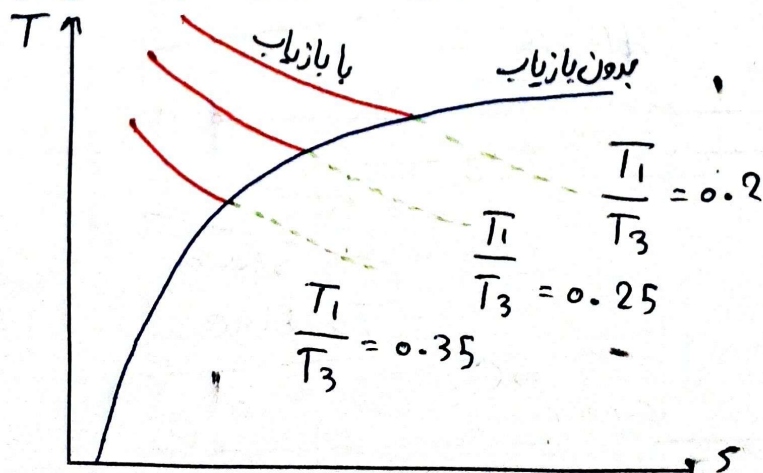 T
با بازیاب
بدون بازیاب
T1/T3 = 0.2
T1/T3 = 0.25
T1/T3 = 0.35
s